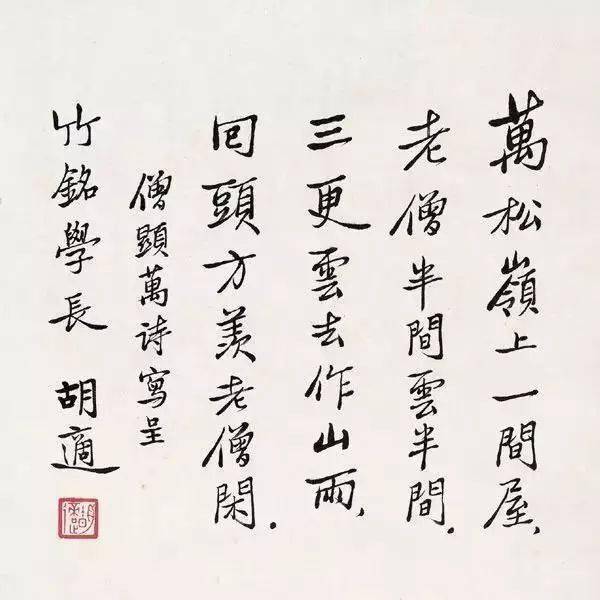 萬松嶺上一間屋、
老僧半間雲半間.
三更雲去作山雨、
囘頭方羨老僧閑.
僧顯萬诗寫呈
竹銘學長 胡適
胡適